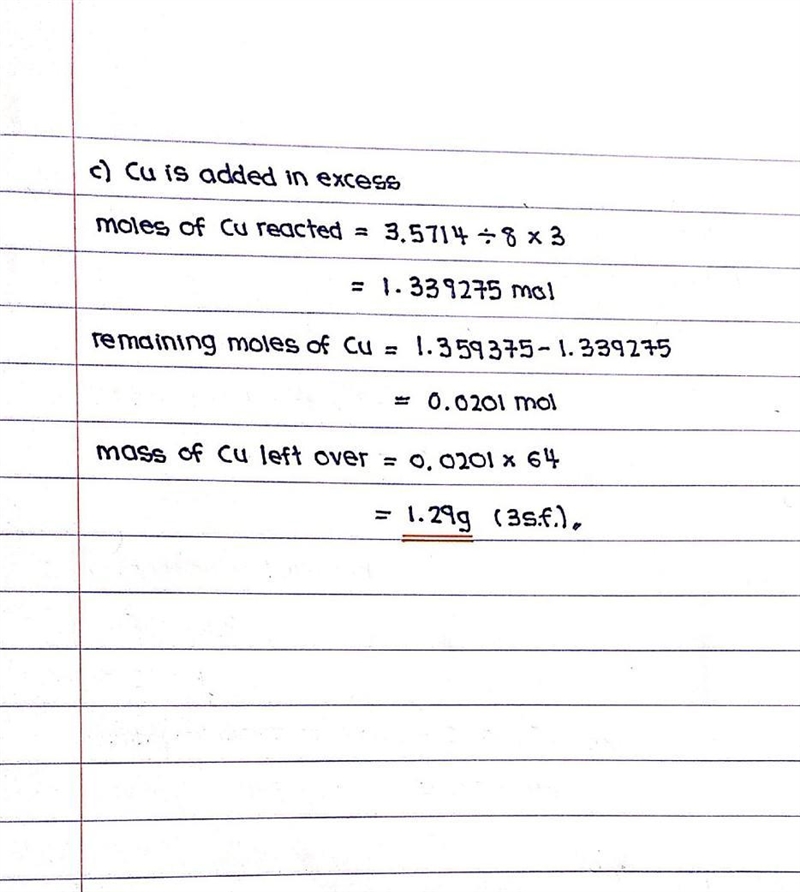 c) Cu is added in excess
moles of Cu reacted = 3.5714 ÷ 8 x 3
= 1.339275 mol
remaining moles of Cu = 1.359375 - 1.339275
= 0.0201 mol
mass of Cu left over = 0.0201 x 64
= 1.29g (3s.f.),